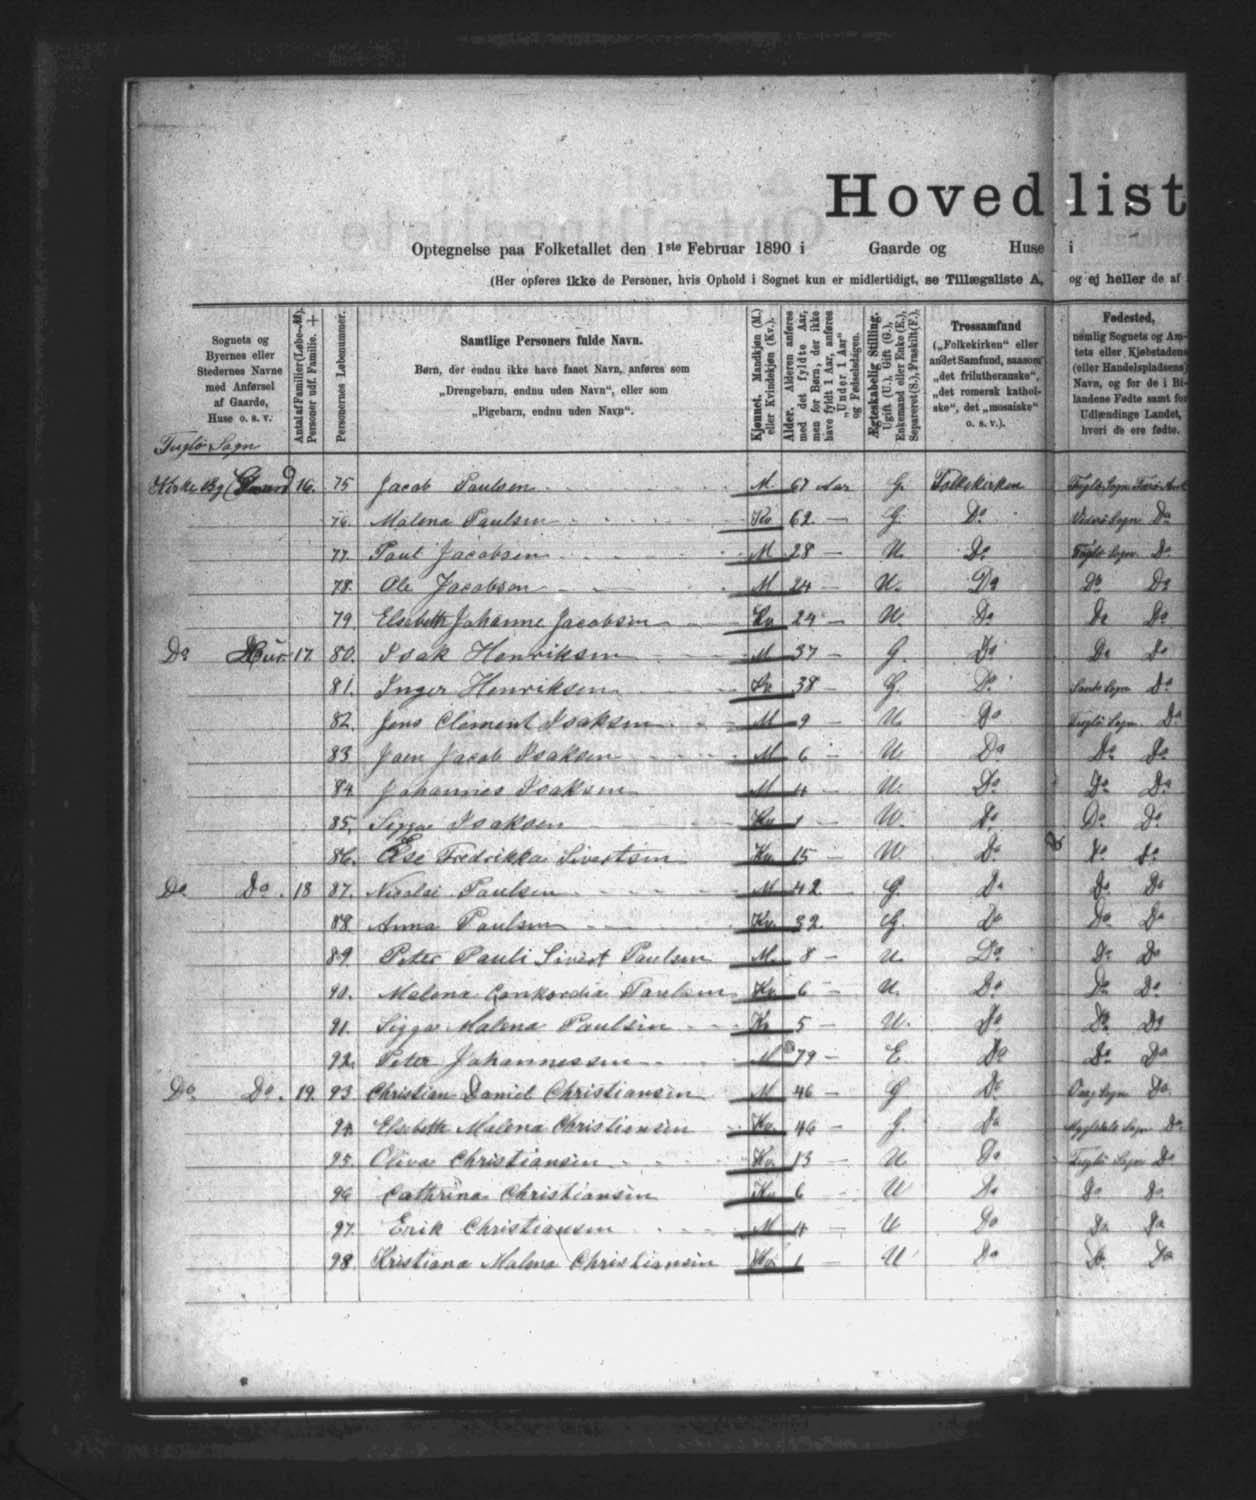 Hovedlist
Optegnelse paa Folketallet den 1ste Februar 1890 i Gaarde og Huse i
(Her opføres ikke de Personer, hvis Ophold i Sognet kun er midlertidigt, se Tillægsliste A, og ej heller de af
Sognets og Byernes eller Stedernes Navne med Anførsel af Gaarde, Huse o. s. v.
Antal af Familier (Løbe-№). Personer udf. Familie. +
Personernes Løbenummer.
Samtlige Personers fulde Navn.
Børn, der endnu ikke have faaet Navn, anføres som
„Drengebarn, endnu uden Navn“, eller som
„Pigebarn, endnu uden Navn“.
Kjønnet. Mandkjøn (M.) eller Kvindekjøn (Kv.).
Alder. Alderen anføres med det fyldte Aar, men for Børn, der ikke have fyldt 1 Aar, anføres „Under 1 Aar“ og Fødselsdagen.
Ægteskabelig Stilling. Ugift (U.), Gift (G.), Enkemand eller Enke (E.), Separeret (S.), Fraskilt (F.).
Trossamfund („Folkekirken“ eller andet Samfund, saasom „det frilutheranske“, „det romersk katholske“, det „mosaiske“ o. s. v.).
Fødested, nemlig Sognets og Amtets eller Kjøbstadens (eller Handelspladsens) Navn, og for de i Bilandene Fødte samt for Udlændinge Landet, hvori de ere fødte.
Fuglø Sogn
Kirke By Gaard 16. 75 Jacob Paulsen M 67 Aar G. Folkekirken Fuglø Sogn Færø Amt
76. Malena Paulsen Kv 62 — G. Do Viderø Sogn Do
77. Paul Jacobsen M 28 — U. Do Fuglø Sogn Do
78. Ole Jacobsen M 24 — U. Do Do Do
79. Elsebeth Johanne Jacobsen Kv 24 — U. Do Do Do
Do Hus 17 80. Isak Henriksen M 37 — G. Do Do Do
81. Inger Henriksen Kv 38 — G. Do Sands Sogn Do
82. Jens Clement Isaksen M 9 — U. Do Fuglø Sogn Do
83 Joen Jacob Isaksen M 6 — U Do Do Do
84 Johannes Isaksen M 4 — U. Do Do Do
85. Sigga Isaksen Kv 1 — U. Do Do Do
86. Else Fredrikka Sivertsen Kv 15 — U Do Do Do
Do Do. 18 87. Nicolai Paulsen M 42 G. Do Do Do
88. Anna Paulsen Kv 32 G. Do Do Do
89. Peter Pauli Sivert Paulsen M. 8 — U. Do Do Do
90. Malena Conkordia Paulsen Kv 6 — U. Do Do Do
91. Sigga Malena Paulsen Kv 5 — U. Do Do Do
92. Peter Johannessen M 79 — E Do Do Do
Do Do. 19. 93 Christian Daniel Christiansen M 46 — G Do Sogn Do
94. Elsebeth Malena Christiansen Kv. 46 — G. Do Sogn Do
95. Oliva Christiansen Kv 13 — U Do Fuglø Sogn Do
96 Cathrina Christiansen Kv 6 — U Do Do Do
97. Erik Christiansen M 4 — U Do Do Do
98. Kristiana Malena Christiansen Kv 1 — U Do Do Do